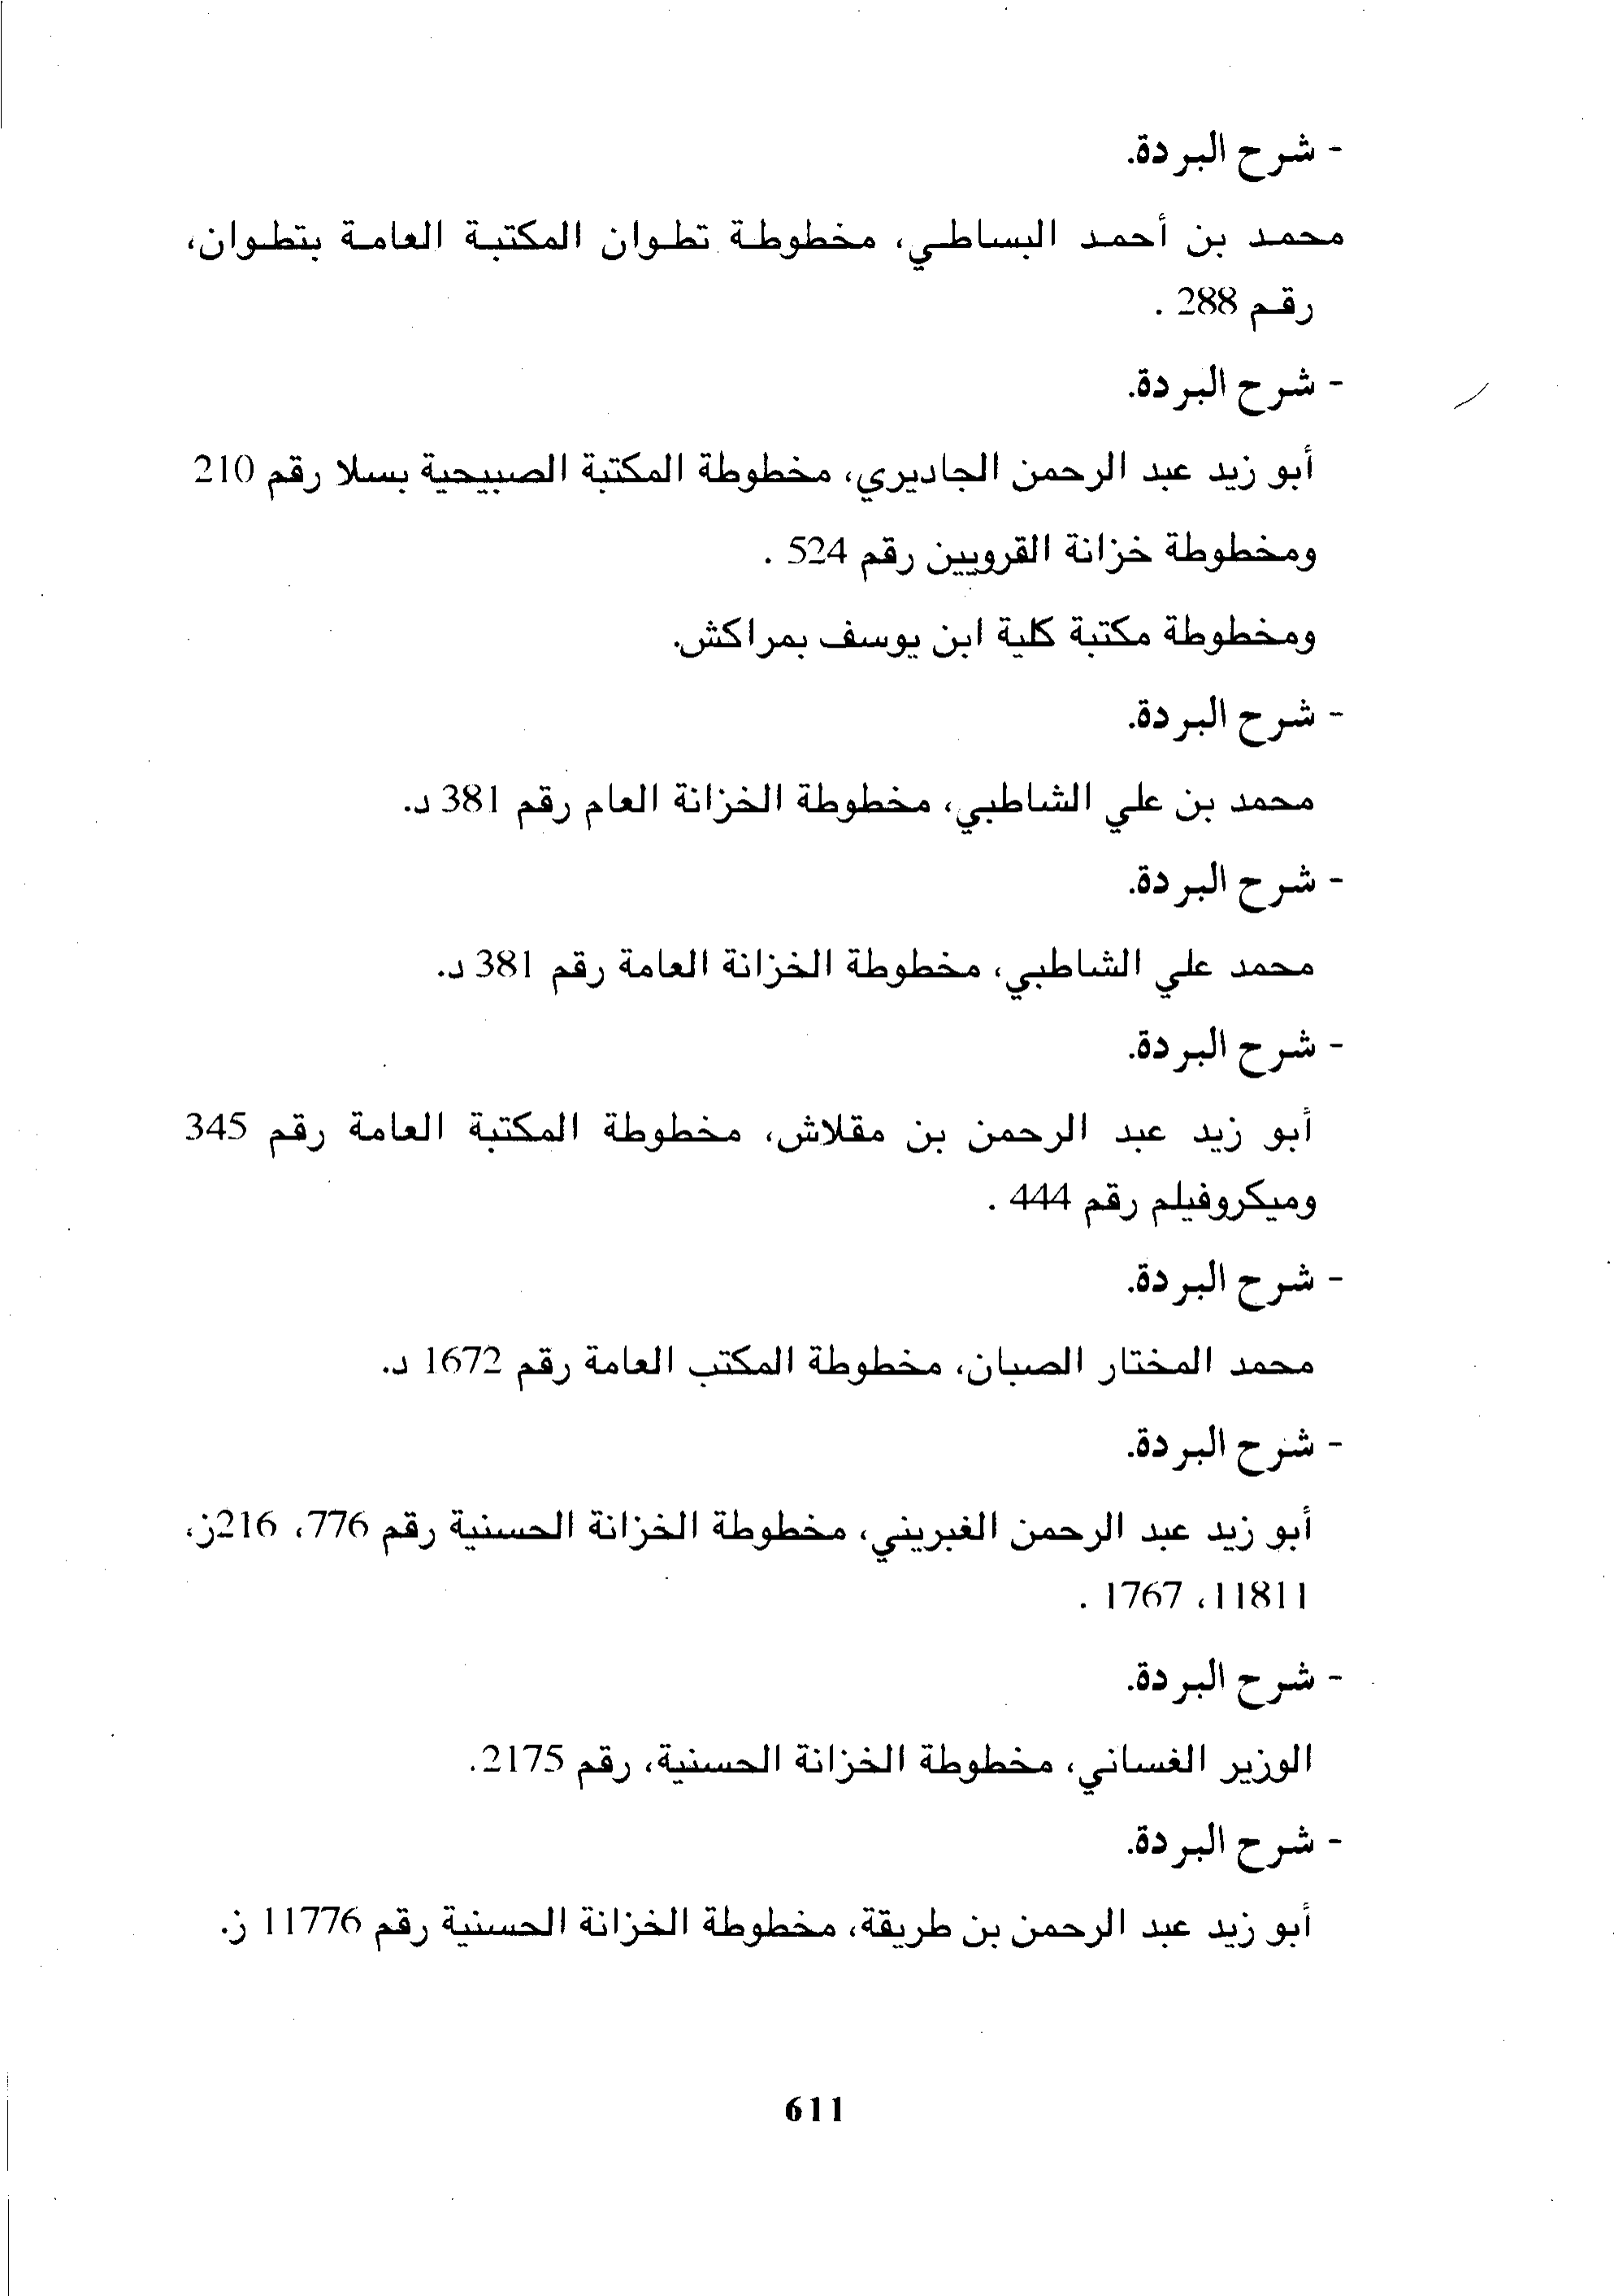 - شرح البردة.
محمد بن أحمد البساطي، مخطوطة تطوان المكتبة العامة بتطوان،
رقم 288 .
- شرح البردة.
أبو زيد عبد الرحمن الجاديري، مخطوطة المكتبة الصبيحية بسلا رقم 210
ومخطوطة خزانة القرويين رقم 524 .
ومخطوطة مكتبة كلية ابن يوسف بمراكش.
- شرح البردة.
محمد بن علي الشاطبي، مخطوطة الخزانة العام رقم 381 د.
- شرح البردة.
محمد علي الشاطبي، مخطوطة الخزانة العامة رقم 381 د.
- شرح البردة.
أبو زيد عبد الرحمن بن مقلاش، مخطوطة المكتبة العامة رقم 345
وميكروفيلم رقم 444 .
- شرح البردة.
محمد المختار الصبان، مخطوطة المكتب العامة رقم 1672 د.
- شرح البردة.
أبو زيد عبد الرحمن الغبريني، مخطوطة الخزانة الحسنية رقم 776، 216ز،
11811، 1767 .
- شرح البردة.
الوزير الغساني، مخطوطة الخزانة الحسنية، رقم 2175.
- شرح البردة.
أبو زيد عبد الرحمن بن طريقة، مخطوطة الخزانة الحسنية رقم 11776 ز.
611